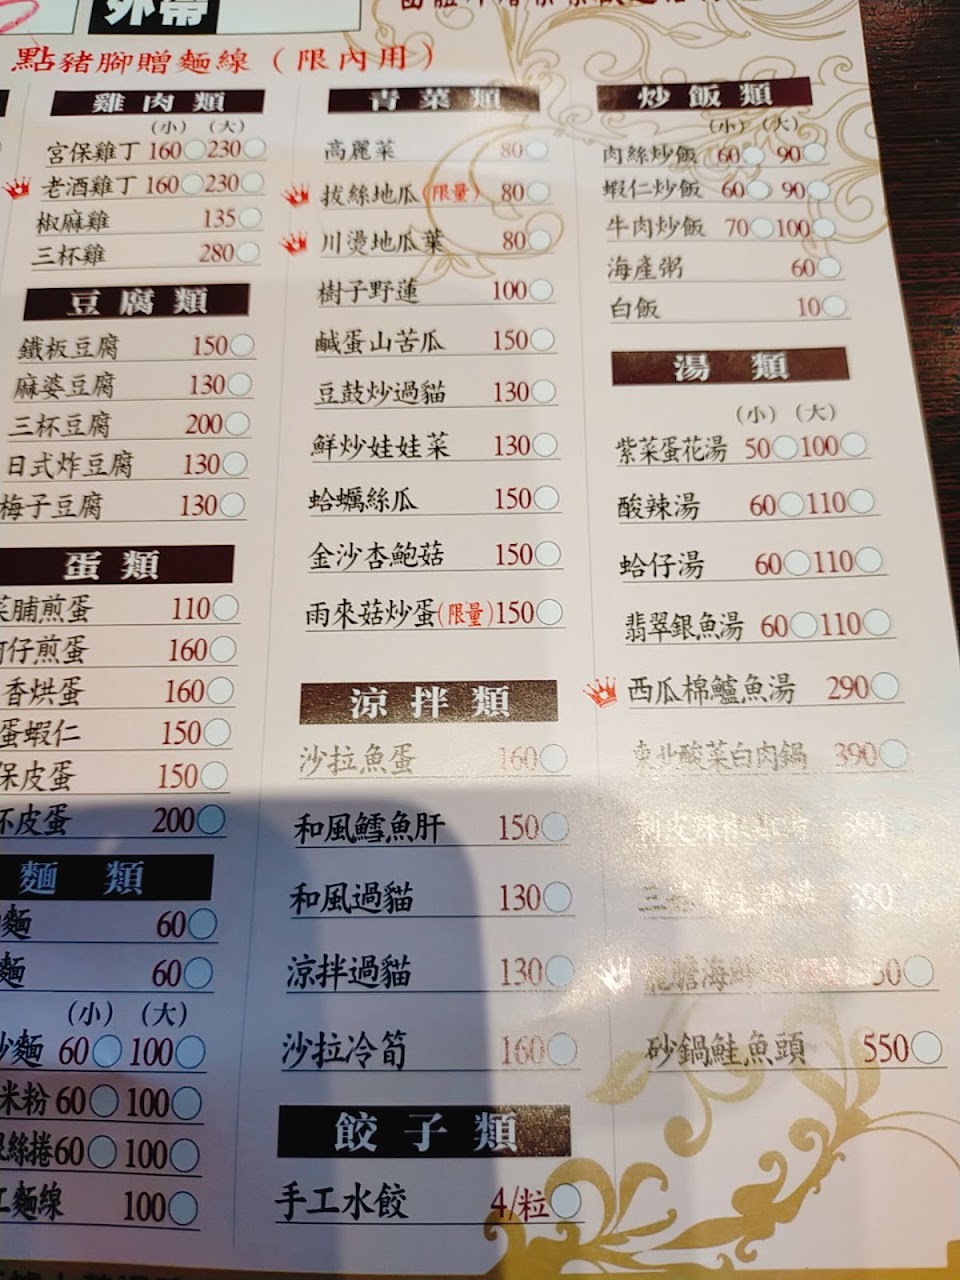 外帶
點豬腳贈麵線（限內用）
雞肉類
（小）（大）
宮保雞丁 160 230
老酒雞丁 160 230
椒麻雞 135
三杯雞 280
豆腐類
鐵板豆腐 150
麻婆豆腐 130
三杯豆腐 200
日式炸豆腐 130
梅子豆腐 130
蛋類
菜脯煎蛋 110
仔煎蛋 160
香烘蛋 160
蛋蝦仁 150
保皮蛋 150
杯皮蛋 200
麵類
麵 60
麵 60
（小）（大）
炒麵 60 100
米粉 60 100
絲捲 60 100
工麵線 100
青菜類
高麗菜 80
拔絲地瓜(限量) 80
川燙地瓜葉 80
樹子野蓮 100
鹹蛋山苦瓜 150
豆鼓炒過貓 130
鮮炒娃娃菜 130
蛤蠣絲瓜 150
金沙杏鮑菇 150
雨來菇炒蛋(限量) 150
涼拌類
沙拉魚蛋 160
和風鱈魚肝 150
和風過貓 130
涼拌過貓 130
沙拉冷筍 160
餃子類
手工水餃 4/粒
炒飯類
（小）（大）
肉絲炒飯 60 90
蝦仁炒飯 60 90
牛肉炒飯 70 100
海產粥 60
白飯 10
湯類
（小）（大）
紫菜蛋花湯 50 100
酸辣湯 60 110
蛤仔湯 60 110
翡翠銀魚湯 60 110
西瓜棉鱸魚湯 290
東北酸菜白肉鍋 390
剝皮辣椒 390
390
龍膽海鮮
砂鍋鮭魚頭 550